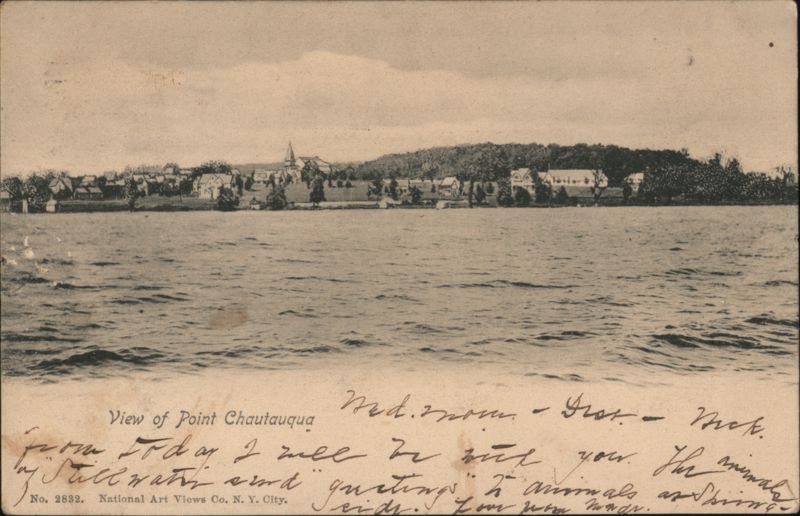 View of Point Chautauqua
Wed. morn. - Dear - Week.
from Today I will be with you. The animals
of "Stillwater send "greetings" to animals at Spring-
side.
No. 2832. National Art Views Co. N. Y. City.